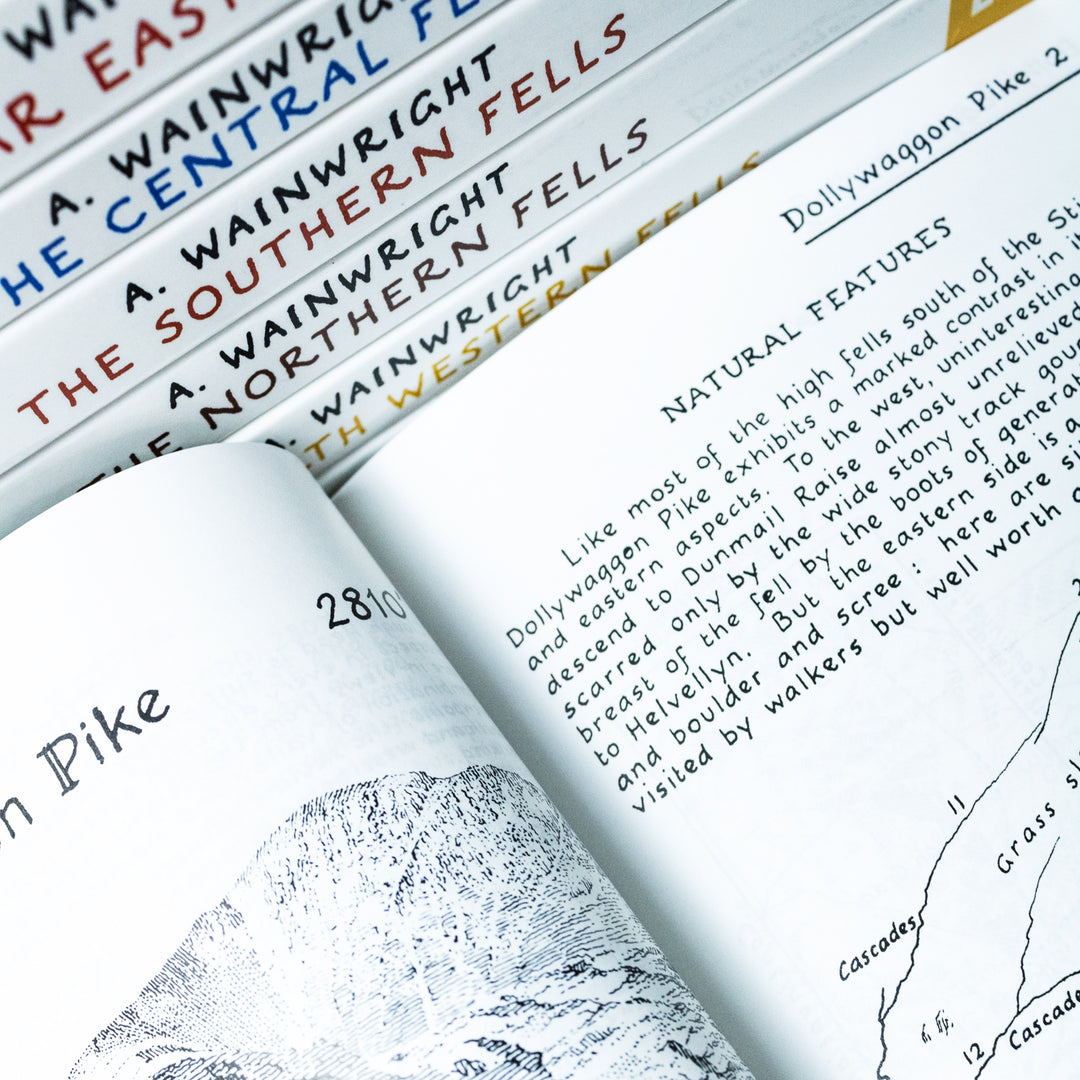 WAI
AR EAST
A. WAINWRIGH
HE CENTRAL FE
A. WAINWRIGHT
THE SOUTHERN FELLS
A. WAINWRIGHT
THE NORTHERN FELLS
A. WAINWRIGHT
TH WESTERN FELLS
2810'
n Pike
Dollywaggon Pike 2
NATURAL FEATURES
Like most of the high fells south of the Sti
Dollywaggon Pike exhibits a marked contrast in it
and eastern aspects. To the west, uninteresting
descend to Dunmail Raise almost unrelieved
scarred only by the wide stony track goug
breast of the fell by the boots of generat
to Helvellyn. But the eastern side is a
and boulder and scree : here are si
visited by walkers but well worth
11
Grass sl
Cascades
12
Cascade